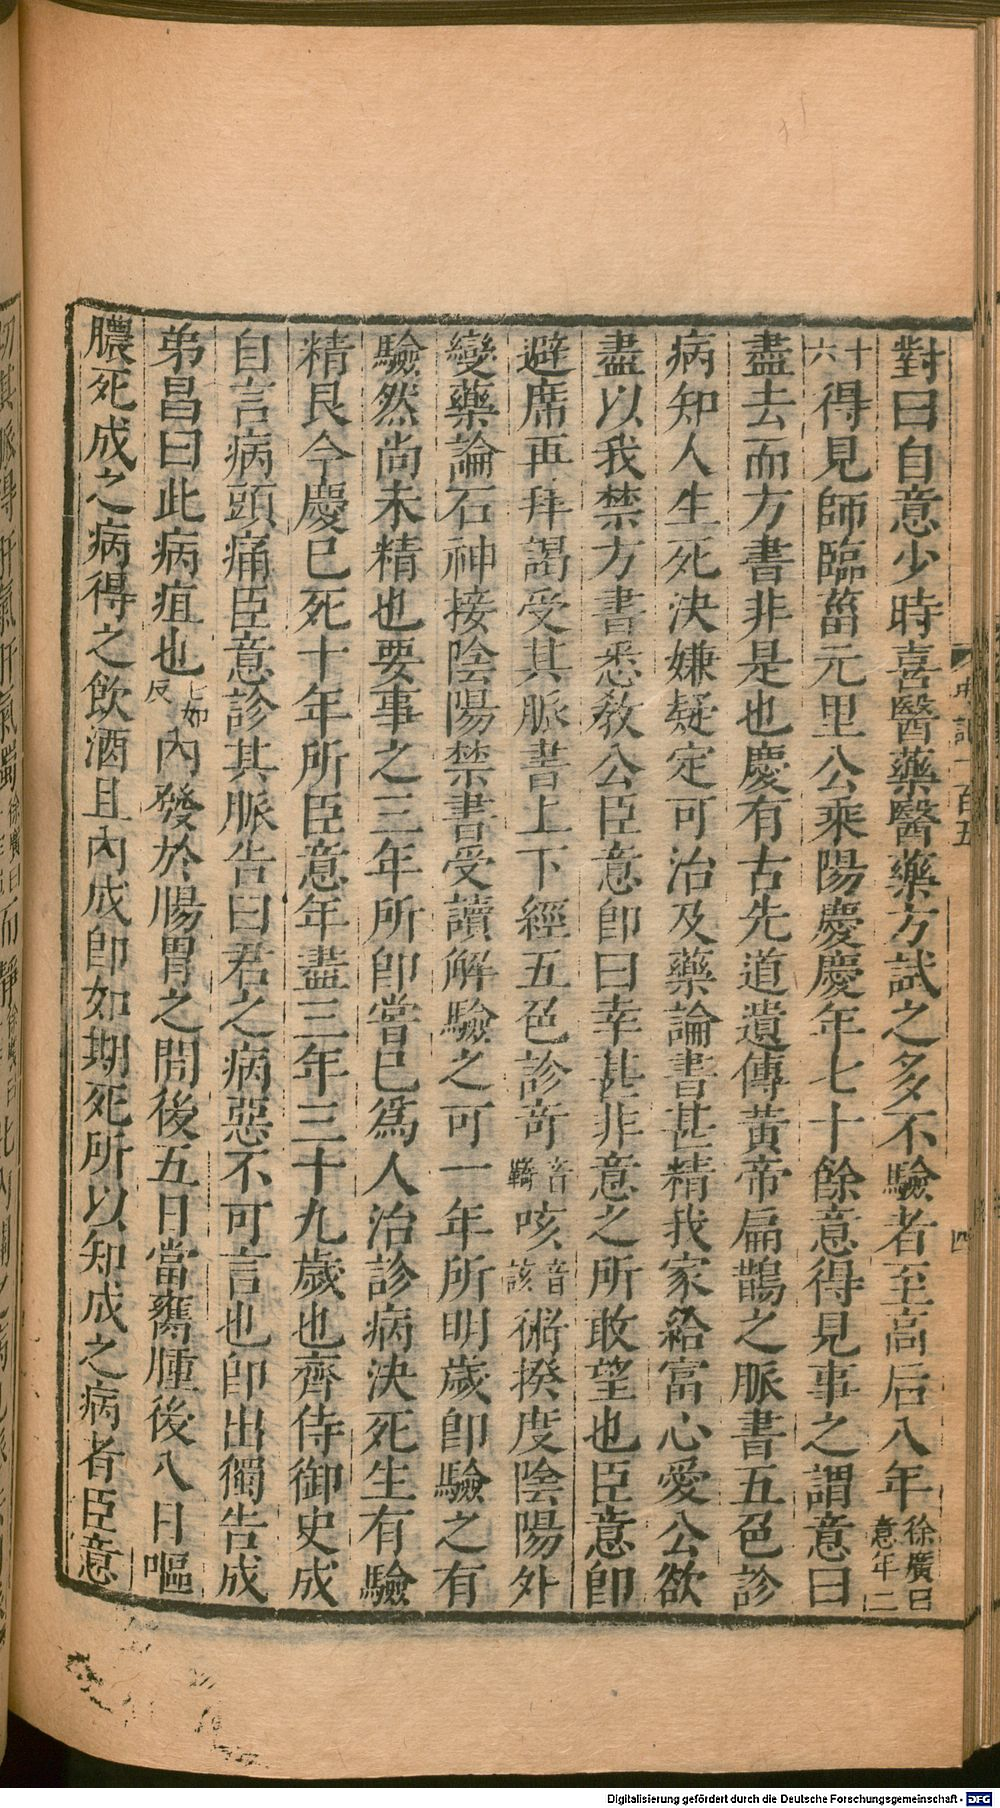 史記一百五
四
對曰自意少時喜醫藥醫藥方試之多不驗者至高后八年徐廣曰意年二
十六得見師臨菑元里公乘陽慶慶年七十餘意得見事之謂意曰
盡去而方書非是也慶有古先道遺傳黃帝扁鵲之脈書五色診
病知人生死決嫌疑定可治及藥論書甚精我家給富心愛公欲
盡以我禁方書悉教公臣意卽曰幸甚非意之所敢望也臣意卽
避席再拜謁受其脈書上下經五色診奇音羇咳音該術揆度陰陽外
變藥論石神接陰陽禁書受讀解驗之可一年所明歲卽驗之有
驗然尚未精也要事之三年所卽嘗已爲人治診病決死生有驗
精良今慶已死十年所臣意年盡三年三十九歲也齊侍御史成
自言病頭痛臣意診其脈告曰君之病惡不可言也卽出獨告成
弟昌曰此病疽也七如反內發於腸胃之間後五日當癰腫後八日嘔
膿死成之病得之飲酒且內成卽如期死所以知成之病者臣意
Digitalisierung gefördert durch die Deutsche Forschungsgemeinschaft - DFG